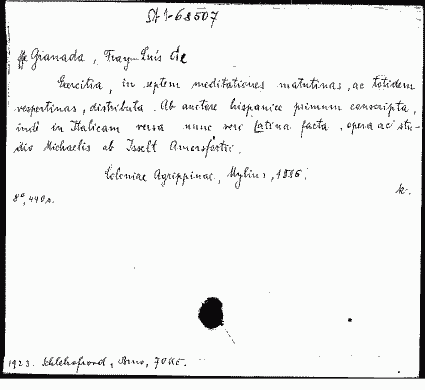 St 1-68507
Granada, Fray Luis de
Exercitia, in septem meditationes matutinas, ac totidem
vespertinas, distributa. Ab auctore hispanice primum conscripta,
inde in Italicam versa nunc vero Latina facta, opera ac stu-
dio Michaelis ab Isselt Amersfortii.
Coloniae Agrippinae, Mylius, 1586.
k.
8°, 440 s.
1923. Brno, 70 Kč.